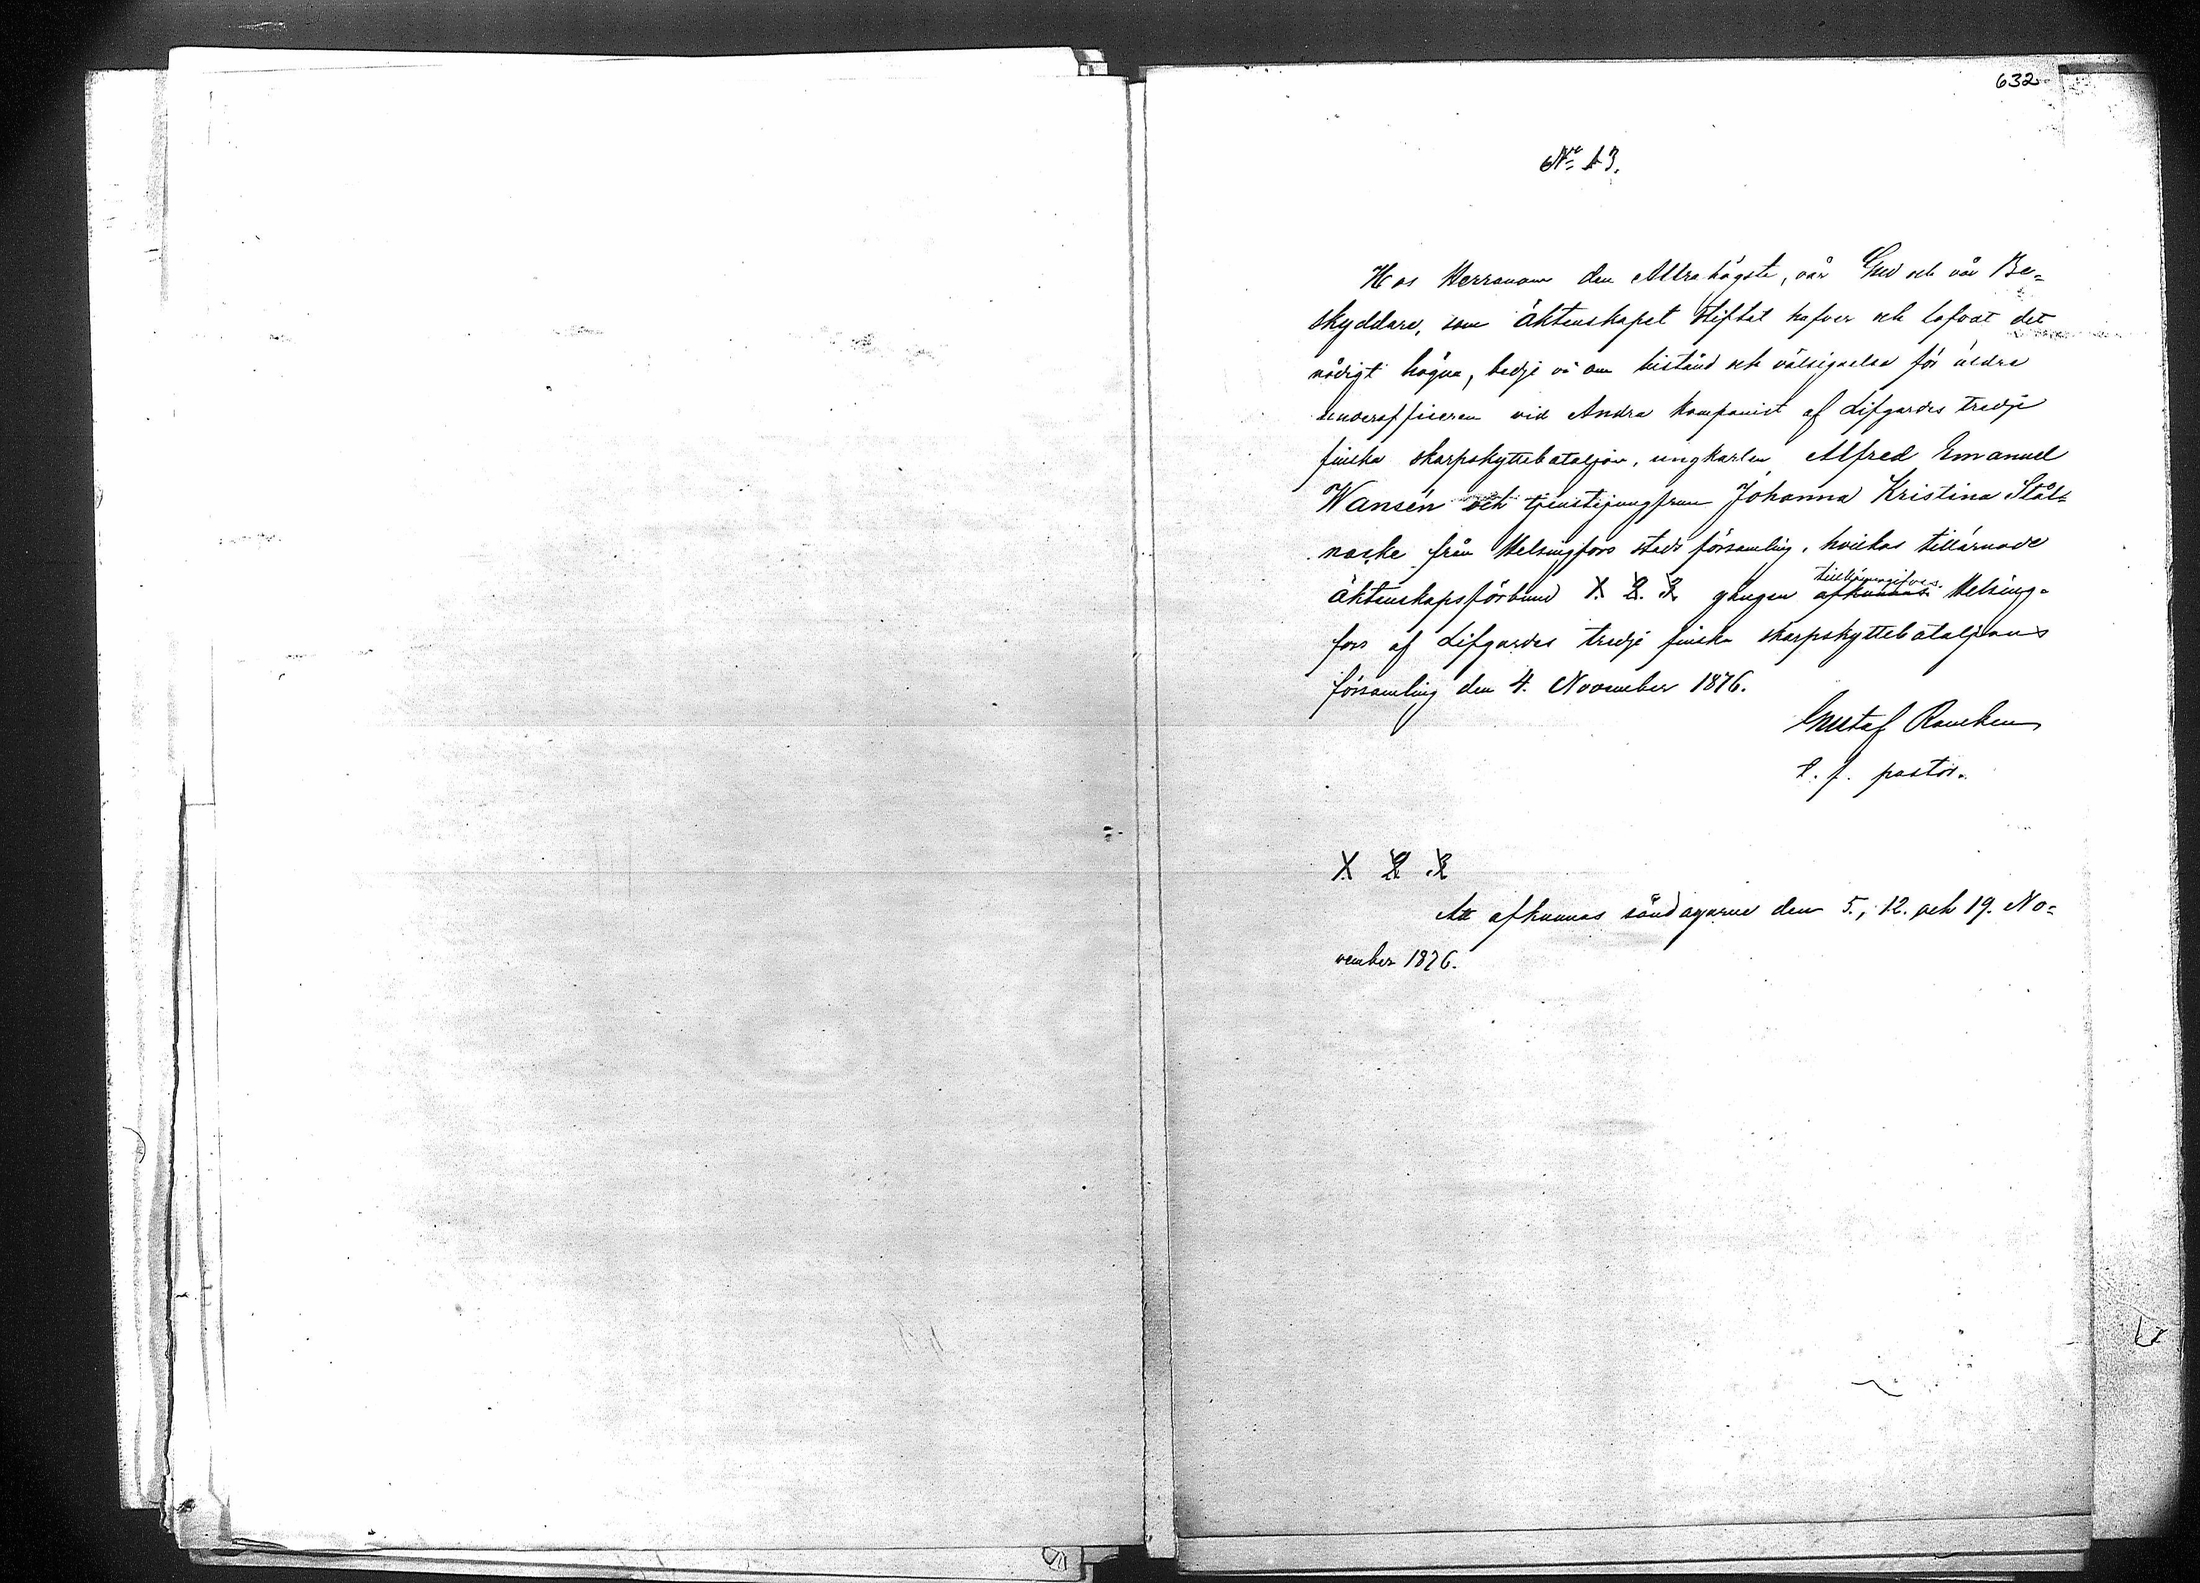 632
No 13.
Hos Herranom den Allrahögste, vår Gud och vår Be=
skyddare, som äktenskapet stiftat hafver och lofvat det
nådigt hägna, bedje vi om bistånd och välsignelse för äldre
underofficeren vid Andra kompaniet af Lifgardes tredje
finska skarpskyttebataljon, ungkarlen Alfred Emanuel
Wansén och tjenstejungfrun Johanna Kristina Stål=
nacke från Helsingfors stads församling, hvilkas tillärnade
äktenskapsförbund 1. 2. 3. gången tillkännagifves afkunnas. Helsing=
fors af Lifgardes tredje finska skarpskyttebataljons
församling den 4. November 1876.
Gustaf Rancken
t. f. pastor.
1 2 3
Att afkunnas söndagarne den 5., 12. och 19. No=
vember 1876.